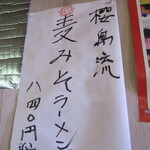 櫻島流
麦みそラーメン
八四〇円